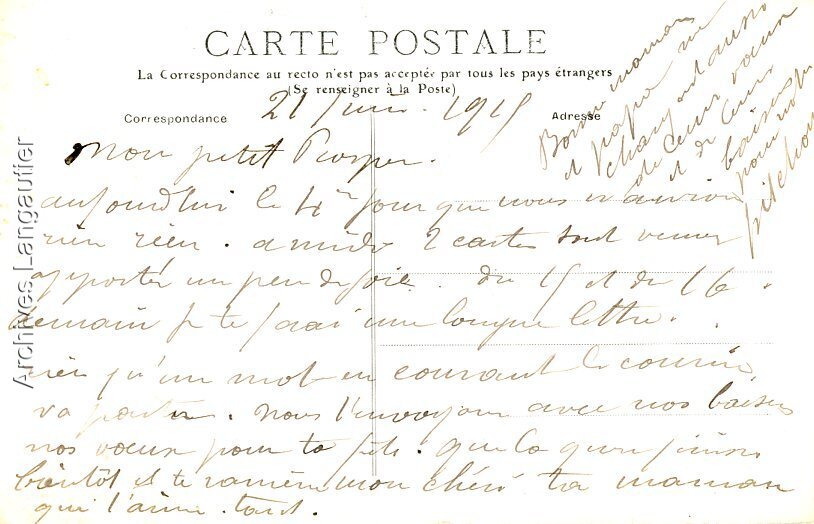 CARTE POSTALE
La Correspondance au recto n'est pas acceptée par tous les pays étrangers
(Se renseigner à la Poste)
Correspondance
Adresse
21 juin 1915
Mon petit Prosper.
aujourd'hui le 4me jour que nous n avions
rien rien. a midi 2 cartes sont venues
apporter un peu de joie. du 15 et du 16.
demain je te ferai une longue lettre.
rien qu'un mot en courant le courrier
va partir. nous t'envoyons avec nos baisers
nos vœux pour ta fête. que la guerre finisse
bientôt et te ramène mon chéri ta maman
qui t'aime tant.
Bonne maman
et papa me
chargent aussi
de leurs vœux
et de leurs
baisers
pour notre
fifichon
Archives Langautier